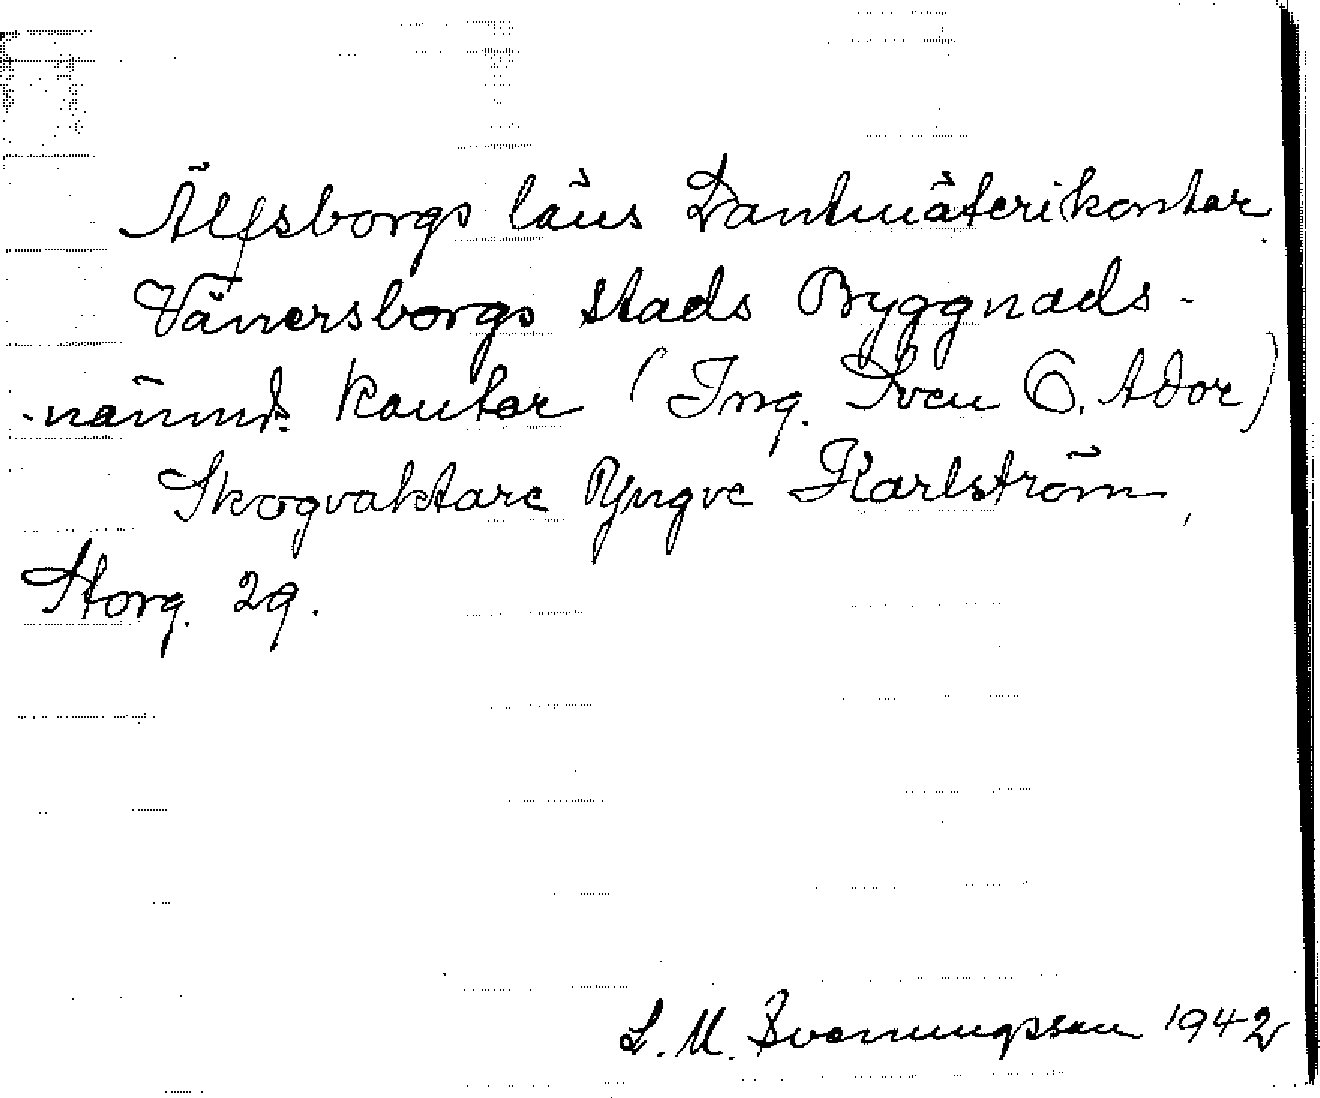 Älfsborgs läns Lantmäterikontor
Vänersborgs stads Byggnads-
-nämnds kontor (Ing. Sven O. Ador)
Skogvaktare Yngve Karlström,
Storg. 29.
L. M. Svenungsson 1942